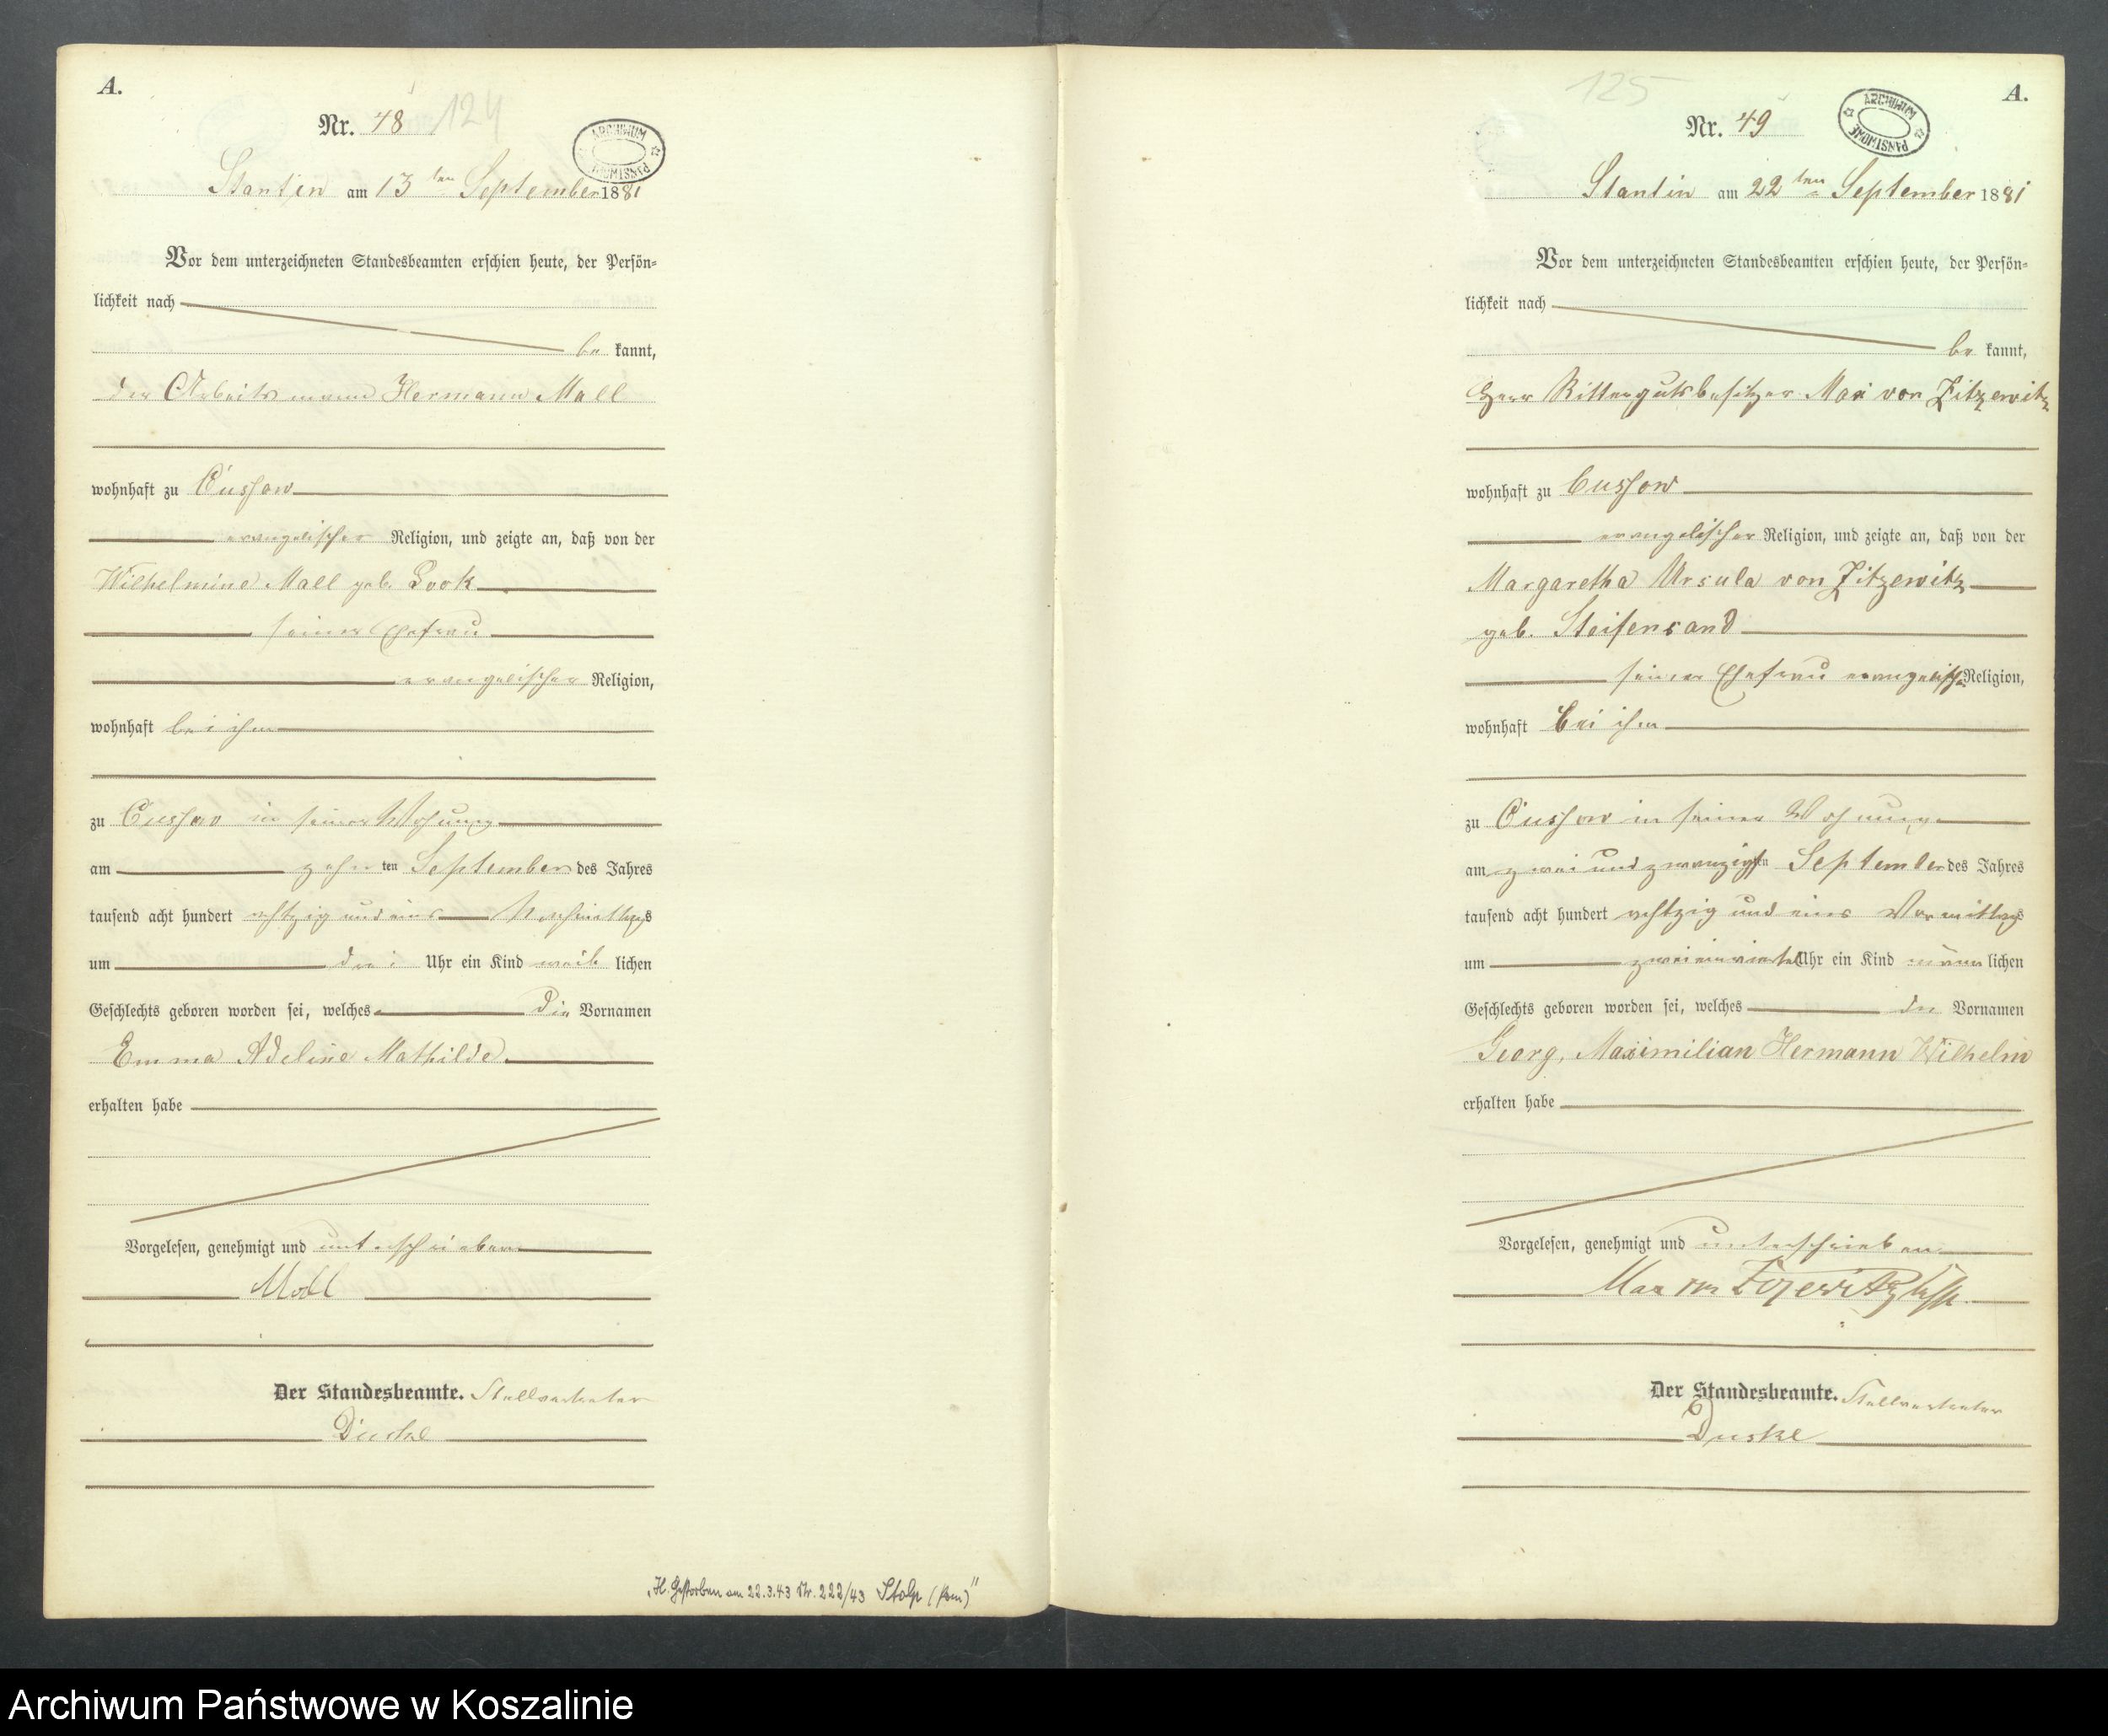 A.
Nr. 48 124
ARCHIWUM PAŃSTWOWE
Stantin am 13ten September 1881
Vor dem unterzeichneten Standesbeamten erschien heute, der Persön-
lichkeit nach
be kannt,
der Arbeitsmann Hermann Mall
wohnhaft zu Cussow
evangelischer Religion, und zeigte an, daß von der
Wilhelmine Mall geb. Look
seiner Ehefrau
evangelischer Religion,
wohnhaft bei ihm
zu Cussow in seiner Wohnung
am zehn ten September des Jahres
tausend acht hundert achtzig und eins Nachmittags
um drei Uhr ein Kind weib lichen
Geschlechts geboren worden sei, welches die Vornamen
Emma Adeline Mathilde
erhalten habe
Vorgelesen, genehmigt und unterschrieben
Moll
Der Standesbeamte. Stellvertreter
Duske
„H. Gestorben am 22.3.43 Nr. 222/43 Stolp (Pom)"
125
A.
Nr. 49
ARCHIWUM PAŃSTWOWE
Stantin am 22ten September 1881
Vor dem unterzeichneten Standesbeamten erschien heute, der Persön-
lichkeit nach
be kannt,
Herr Rittergutsbesitzer Max von Zitzewitz
wohnhaft zu Cussow
evangelischer Religion, und zeigte an, daß von der
Margaretha Ursula von Zitzewitz
geb. Steifensand
seiner Ehefrau evangelisch. Religion,
wohnhaft bei ihm
zu Cussow in seiner Wohnung
am zwei und zwanzigsten September des Jahres
tausend acht hundert achtzig und eins Vormittags
um zwei ein viertel Uhr ein Kind männ lichen
Geschlechts geboren worden sei, welches die Vornamen
Georg, Maximilian Hermann Wilhelm
erhalten habe
Vorgelesen, genehmigt und unterschrieben
Max von Zitzewitz
Der Standesbeamte. Stellvertreter
Duske
Archiwum Państwowe w Koszalinie